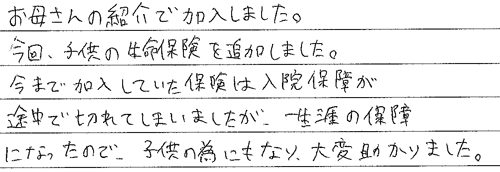 お母さんの紹介で加入しました。
今回、子供の生命保険を追加しました。
今まで加入していた保険は入院保障が
途中で切れてしまいましたが、一生涯の保障
になったので、子供の為にもなり、大変助かりました。